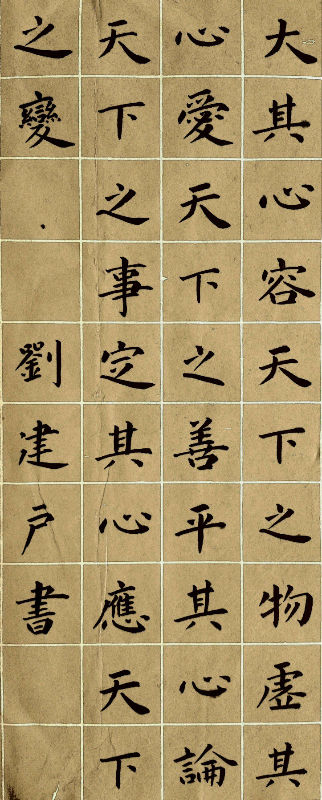 大其心容天下之物虛其
心愛天下之善平其心論
天下之事定其心應天下
之變.劉建戶書